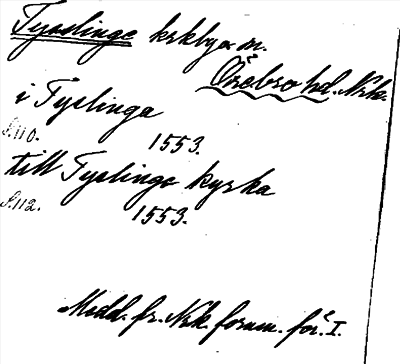 Tysslinge krkby o. m.
Örebro hd. Nrk.
i Tyslinga
S. 110.
1553.
till Tyslinge kyrka
S. 112.
1553.
Medd. fr. Nrk. fornm. för. I.